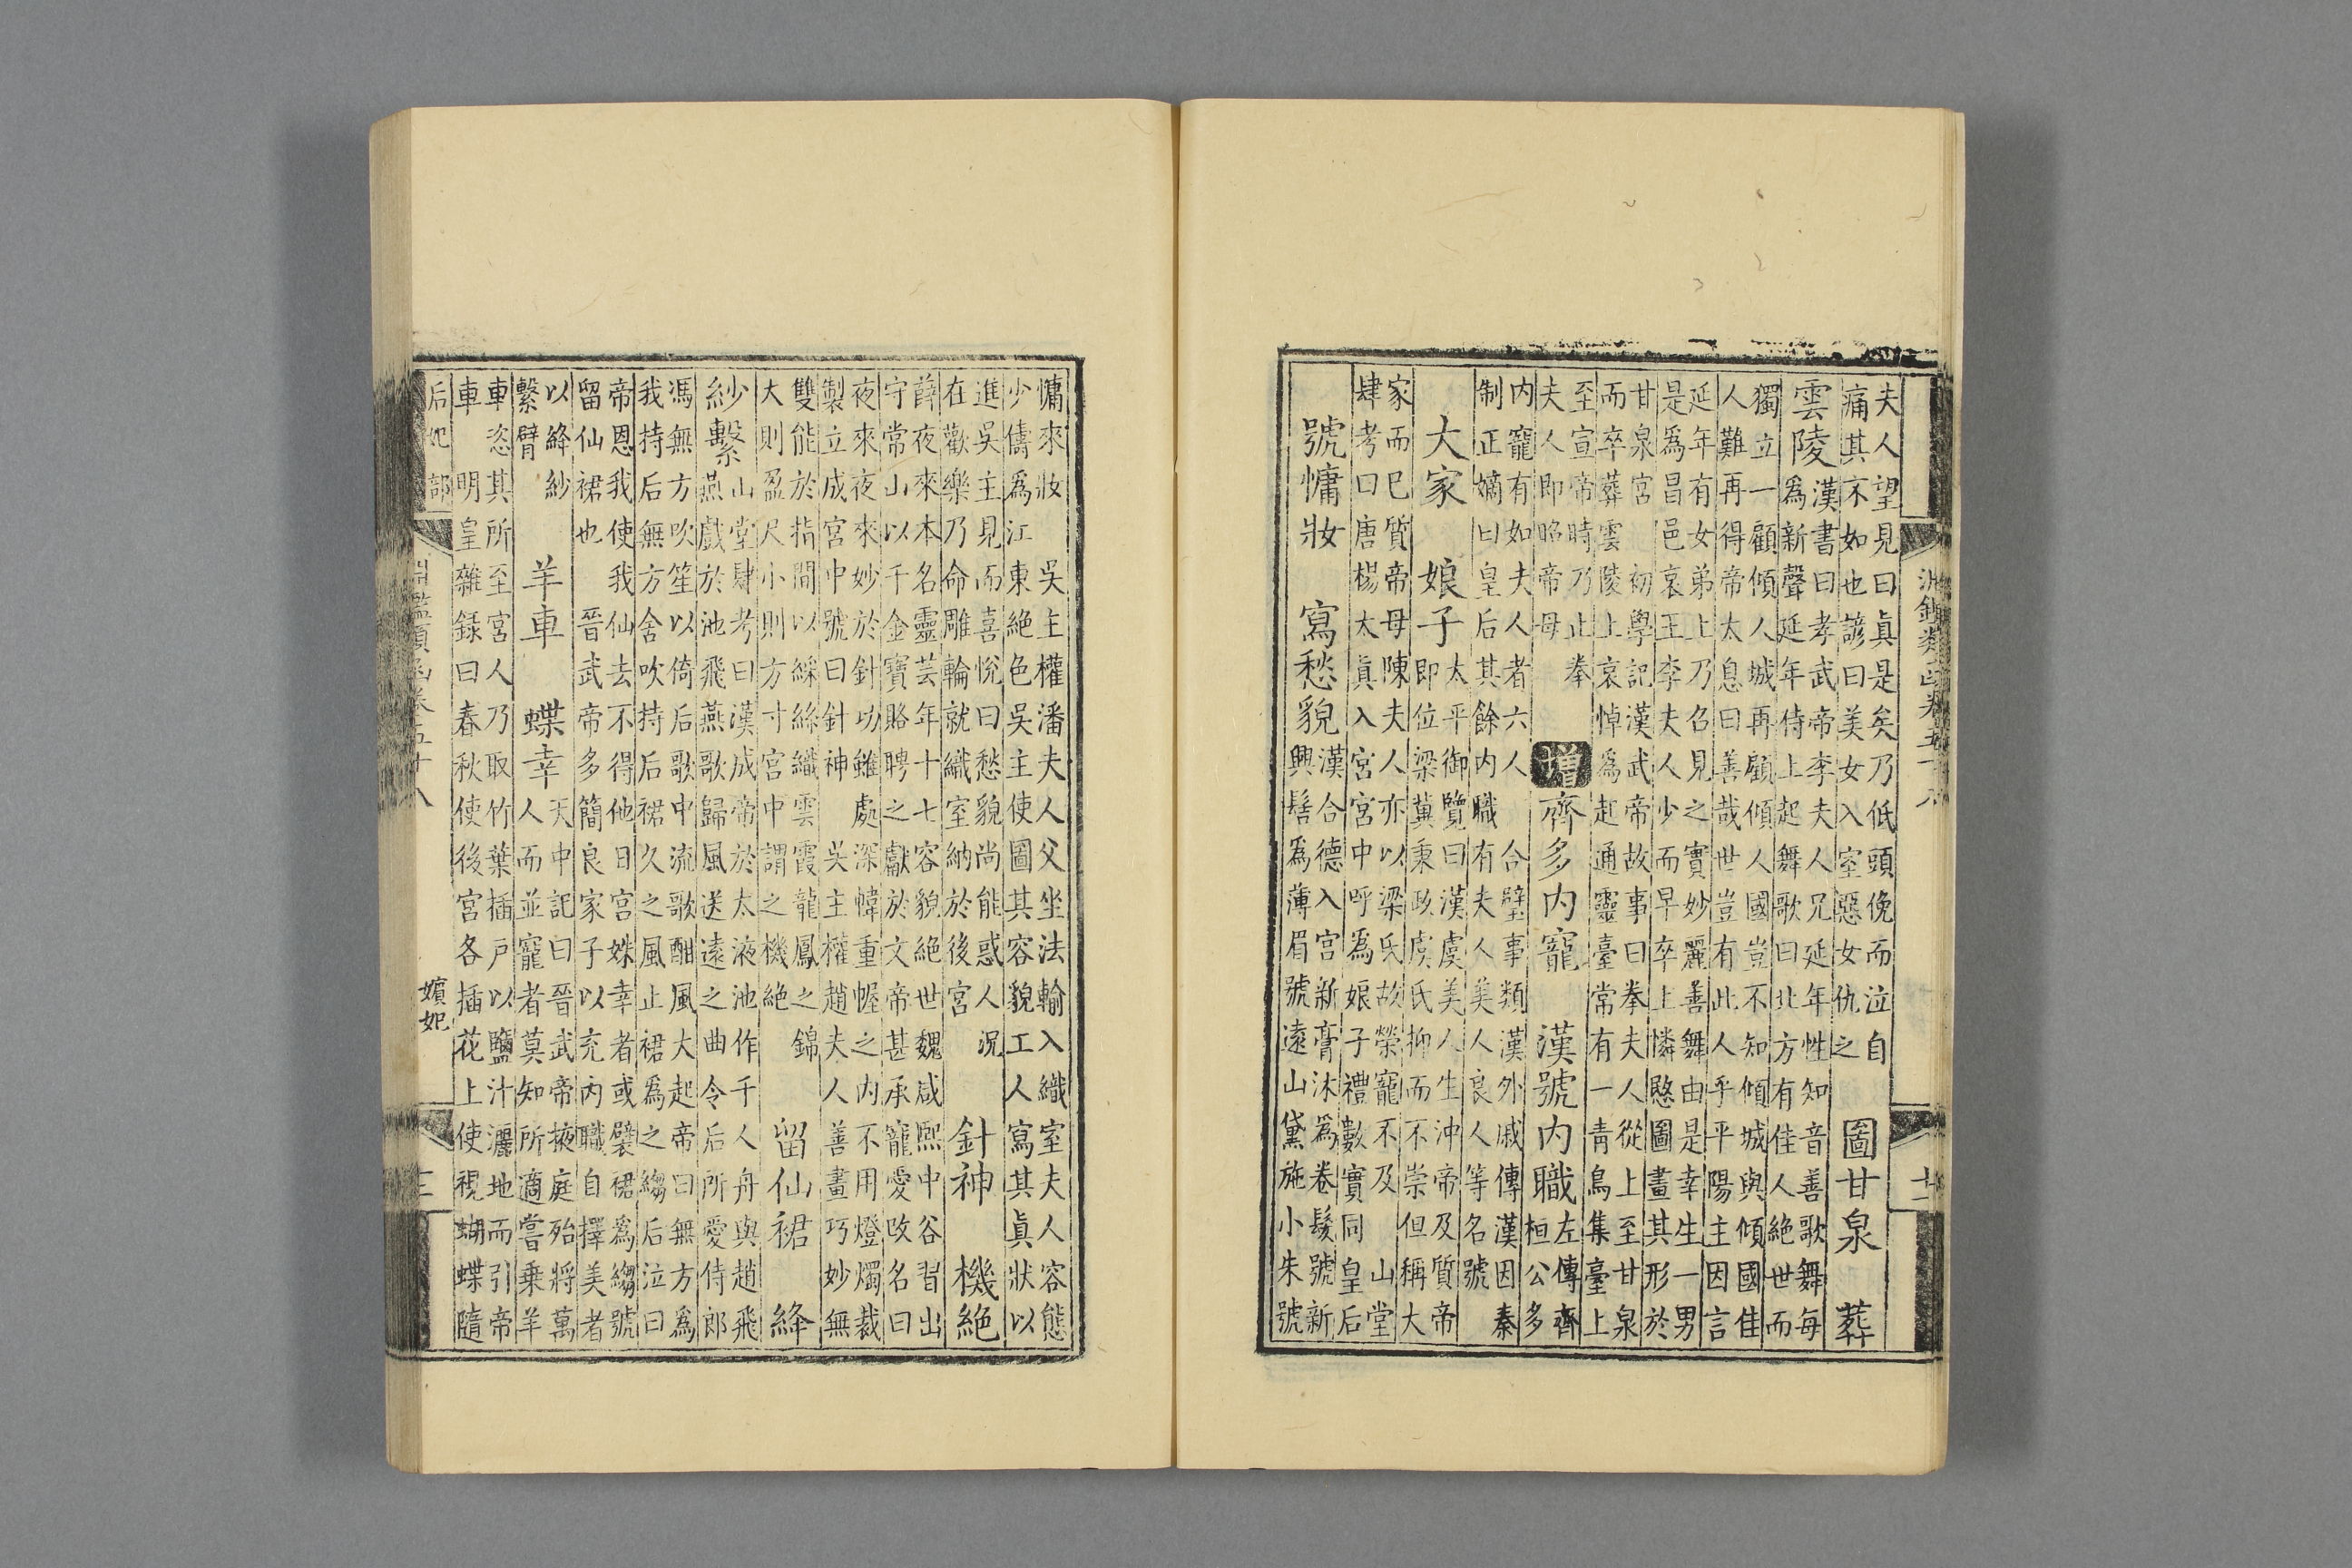 淵鑑類函卷五十八
夫人望見曰眞是矣乃低頭俛而泣自
痛其不如也諺曰美女入室惡女仇之
圖甘泉　葬
雲陵
漢書曰孝武帝李夫人兄延年性知音善歌舞每
爲新聲延年侍上起舞歌曰北方有佳人絕世而
獨立一顧傾人城再顧傾人國豈不知傾城與傾國佳
人難再得帝太息曰善哉世豈有此人乎平陽主因言
延年有女弟上乃召見之實妙麗善舞由是幸生一男
是爲昌邑哀王李夫人少而早卒上憐愍圖畫其形於
甘泉宮　初學記漢武帝故事曰拳夫人從上至甘泉
而卒葬雲陵上哀悼爲起通靈臺常有一青鳥集臺上
至宣帝時乃止　拳
夫人即昭帝母
增　齊多内寵　漢號内職
左傳齊
桓公多
内寵有如夫人者六人　合璧事類漢外戚傳漢因秦
制正嫡曰皇后其餘内職有夫人美人良人等名號
大家　娘子
太平御覽曰漢虞美人生沖帝及質帝
即位梁冀秉政虞氏抑而不崇但稱大
家而已質帝母陳夫人亦以梁氏故榮寵不及　山堂
肆考曰唐楊太眞入宮宮中呼爲娘子禮數實同皇后
號慵妝　寫愁貌
漢合德入宮新膏沐爲卷髮號新
興髻爲薄眉號遠山黛施小朱號
慵來妝　吳主權潘夫人父坐法輸入織室夫人容態
少儔爲江東絕色吳主使圖其容貌工人寫其眞狀以
進吳主見而喜悅曰愁貌尚能惑人況
在歡樂乃命雕輪就織室納於後宮
針神　機絕
薛夜來本名靈芸年十七容貌絕世魏咸熙中谷習出
守常山以千金寶賂聘之獻於文帝甚承寵愛改名曰
夜來夜來妙於針功雖處深幃重幄之内不用燈燭裁
製立成宮中號曰針神　吳主權趙夫人善畫巧妙無
雙能於指間以綵絲織雲霞龍鳳之錦
大則盈尺小則方寸宮中謂之機絕
留仙裙　絳
紗繫
山堂肆考曰漢成帝於太液池作千人舟與趙飛
燕戲於池飛燕歌歸風送遠之曲令后所愛侍郎
馮無方吹笙以倚后歌中流歌酣風大起帝曰無方爲
我持后無方舍吹持后裙久之風止裙爲之縐后泣曰
帝恩我使我仙去不得他日宮姝幸者或襞裙爲縐號
留仙裙也　晉武帝多簡良家子以充内職自擇美者
以絳紗
繫臂
羊車　蝶幸
天中記曰晉武帝掖庭殆將萬
人而並寵者莫知所適嘗乗羊
車恣其所至宮人乃取竹葉插戸以鹽汁灑地而引帝
車　明皇雜録曰春秋使後宮各插花上使視蝴蝶隨
后妃部
嬪妃